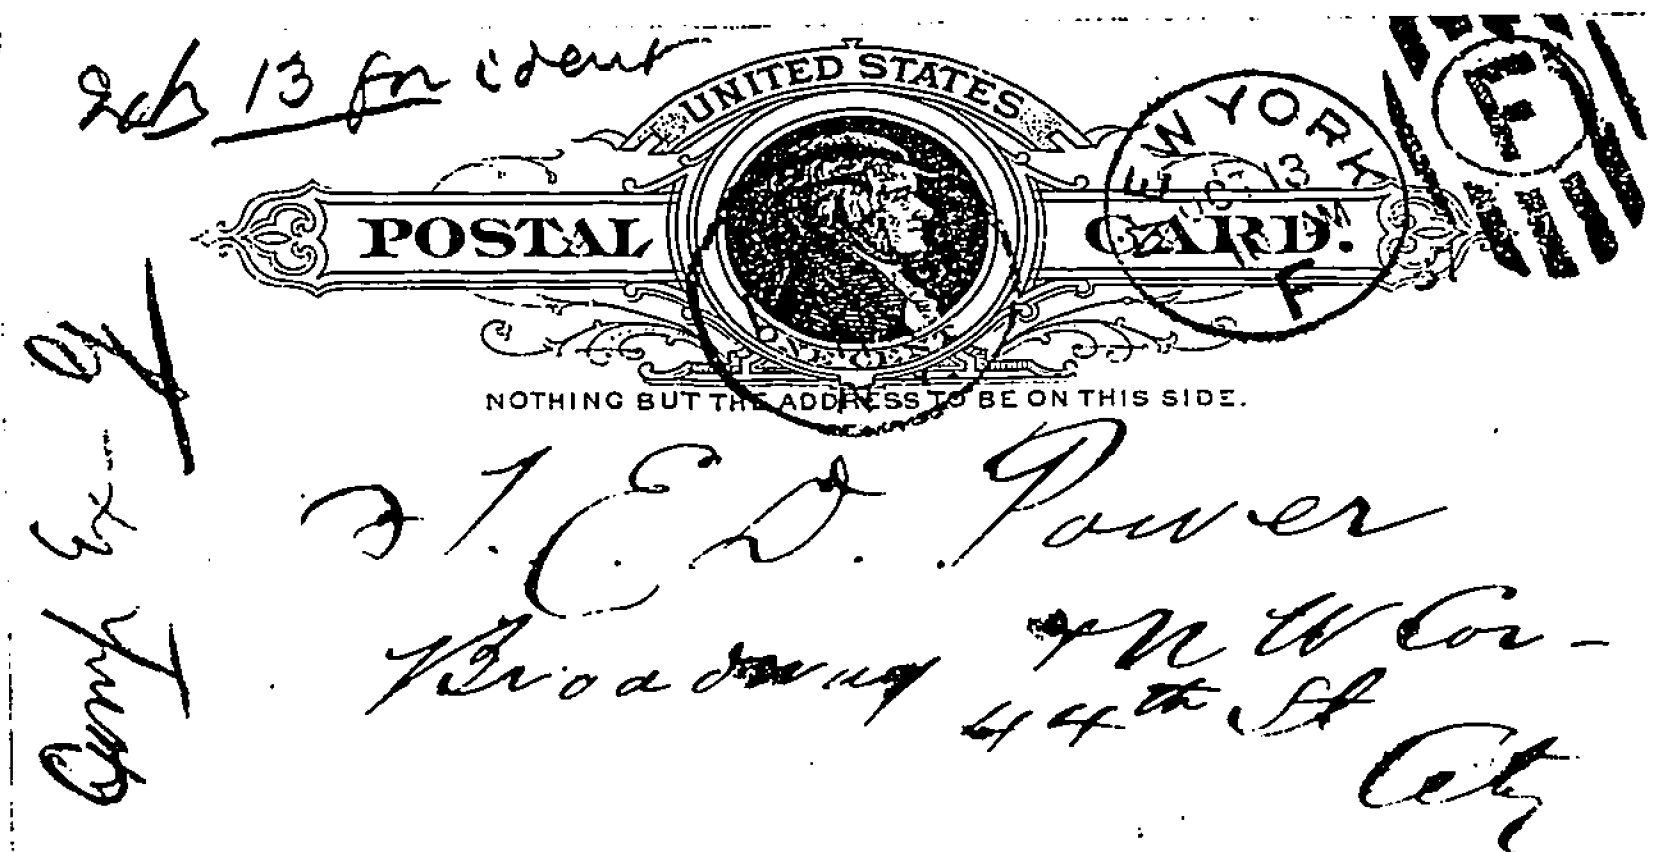 Feb 13 for ident
UNITED STATES
POSTAL CARD.
ONE CENT
NEW YORK
OCT 13
F
F
NOTHING BUT THE ADDRESS TO BE ON THIS SIDE.
E. D. Power
Broadway & N W Cor-
44th St
City
Ex